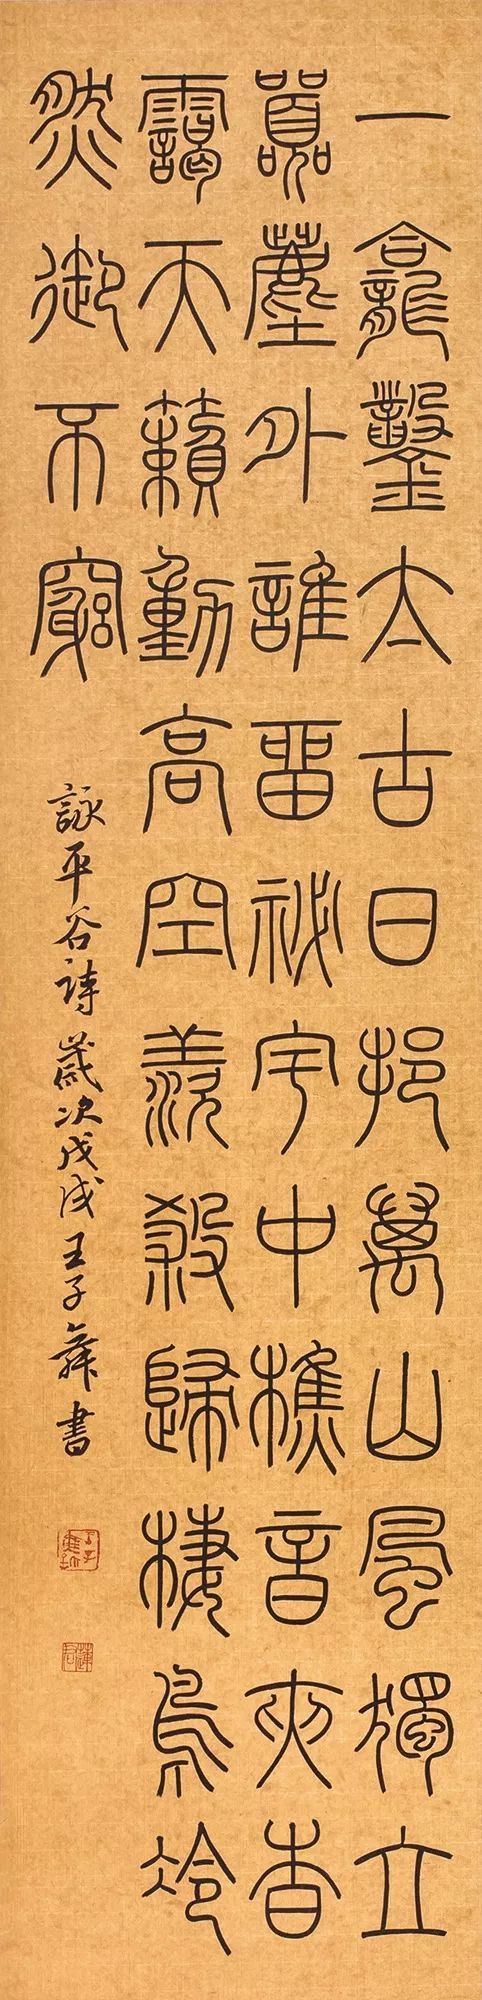 一龕鑿太古日挹萬山風獨立
囂塵外誰畱祕宇中樵音夾香
靄天籟動高空羨殺歸棲鳥冷
然御不窮
詠平谷詩歲次戊戌王子書